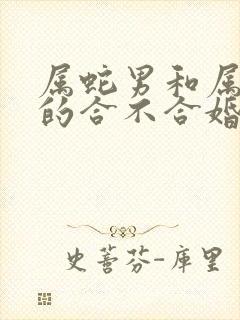 属蛇男和属
的合不合婚
史蕾芬-库里